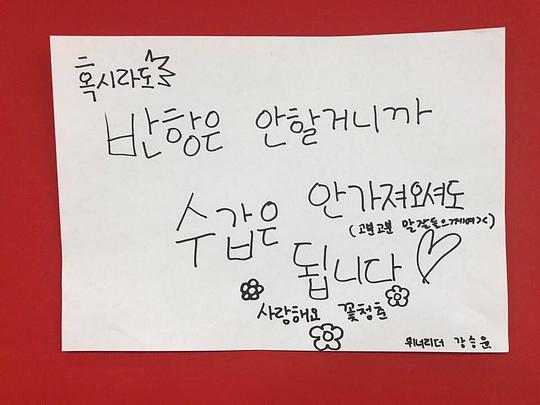 혹시라도
반항은 안할거니까
수갑은 안가져오셔도
(고분고분 말잘들으께여><)
됩니다
사랑해요 꽃청춘
위너리더 강승윤